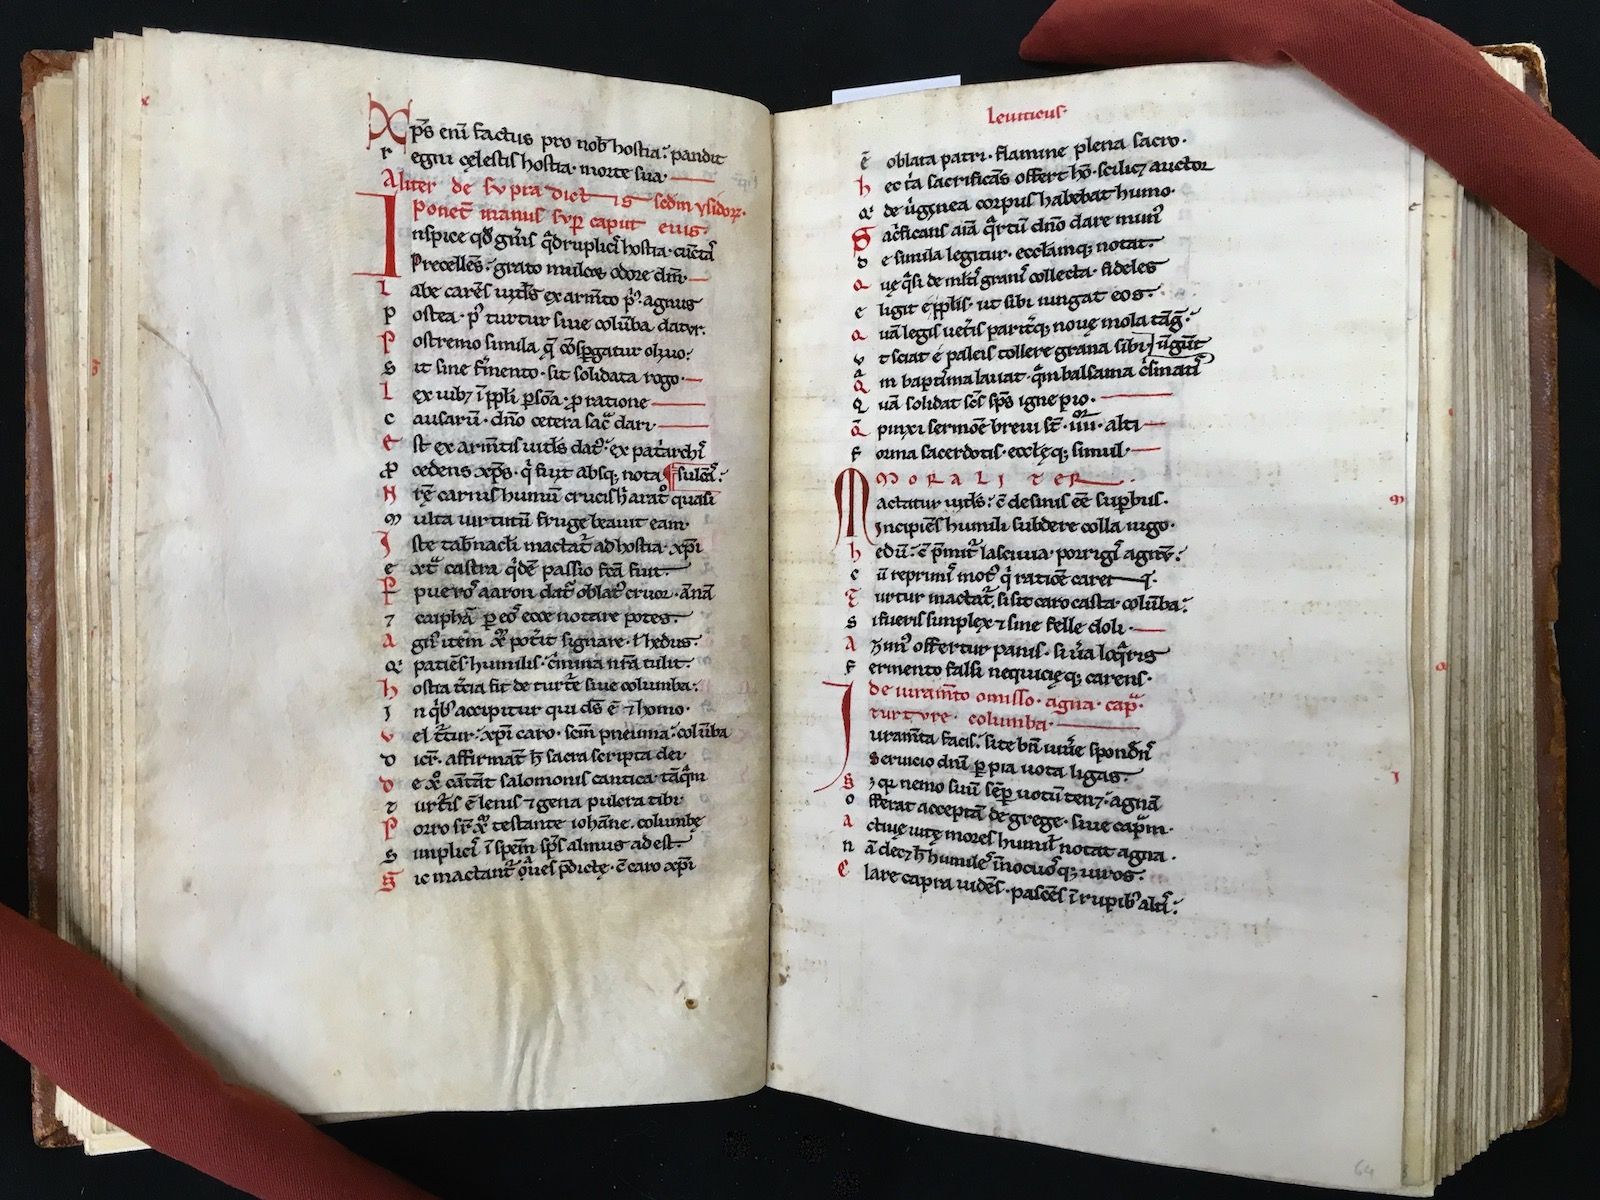 Xp̄s eni̅ factus pro nob̅ hostia. pandit
regni cęlestis hostia. morte sua.
Aliter de supra dictis sedm ysidoꝝ.
Ponet manus sup̱ caput eius.
Inspice qđ gn̅is q̇druplici hostia. cu̅cta̅
Precelle̅s. grato mulcet odore dm̅.
Labe care̅s uitl̅s ex arm̅to p̱. agnus
Postea. p̱ turtur siue colu̅ba datur.
Postremo simila q̅ co̅sp̱gatur oliuo.
Sit sine f̅mento. sit solidata rogo.
Causaru̅. dn̅o cetera dari.
Est ex arm̅tis uitl̅s dat᷒. ex pat̅archi̅
Multa uirtutu̅ fruge beauit eam.
Iste tab̅nacl̅i mactat̅ ad hostia. xp̅i
Extra castra q̇de̅ passio fc̅a fuit.
Puero aaron dat᷒ oblat᷒ cruor. anna̅
⁊ caipha̅ p̱ eos ecce notare potes.
Agn᷒ ite̅m pot̅it signare. l̅ hedus.
patie̅s humilis. c̅mina nr̅a tulit.
Hostia t̅cia fit de turt̅e siue columba.
In q̇b᷒ accipitur qui ds̅ e̅ ⁊ homo.
Vel t̅tur. xp̅i caro. scm̅ pneuma. colu̅ba
Dicit̅. affirmat h̅ sacra scripta dei.
De ca̅ta̅t salomonis cantica. ta̅q̅m
Turt̅is e̅ lenis ⁊ gena pulcra tibi.
Porro sr̅ testante ioha̅ne. columbę
Simplici̅ i̅ speci̅m sp̅s almus adest.
Sic mactant̅ p̅dictę. e̅ caro xp̅i
Leuiticus.
E̅ oblata patri. flamine plena sacro.
Hec ita sacrifica̅s offert ho̅. scilic⁊ auctor
de u̅gi̅nea corpus habebat humo.
Sac̅ficans aia̅ q̅rtu̅ dn̅o dare mun᷒
De simila legitur. eccl̅amq; notat.
Quę q̇si de ml̅ti̅ grani̅ collecta. fideles
Eligit e̅ pp̅lis. ut sibi iungat eos.
Qua̅ legis uet̅is parit̅q; nouę mola ta̅g̅.
Vt sciat e̅ paleis tollere grana sibi. u̅gu̅t
Am baptisma lauat. q̅m balsama
Qua̅ solidat scs̅ sp̅s igne pio.
Q̅ pinxi sermo̅e breui st̅. alti
Forma sacerdotis. ecclęq; simul.
MORALITER.
Mactatur uitl̅s. c̅ desinis e̅e sup̱bus.
Incipie̅s humili subdere colla iugo.
Hedu̅. c̅ p̅mit̅ lasciuia. porrigi̅ agnu̅.
Cu̅ reprimi̅ mot᷒ q̇ ratio̅e caret.
Turtur mactat̅. si sit caro casta. colu̅ba.
Si fueris simplex ⁊ sine felle doli.
Azim᷒ offertur panis. si u̅a loq̅ris
Fermento falsi nequicięq; carens.
De iuram̅to omisso. agna. cap̅a.
turture. columba.
Iuram̅ta facis. si te bn̅ uiu̅e sponde̅s
Seruicio dn̅i p̱ pia uota ligas.
S⁊ qr nemo suu̅ semp̱ uotu̅ ten⁊. agna̅
Offerat accepta̅ de grege. siue cap̅m.
Actiuę uitę mores humil̅ notat agna.
Na̅ dec⁊ h̅ humiles i̅nocuosq; uiros.
Clare capra uide̅s. pasce̅s i̅ rupib᷒ alti̅.
64